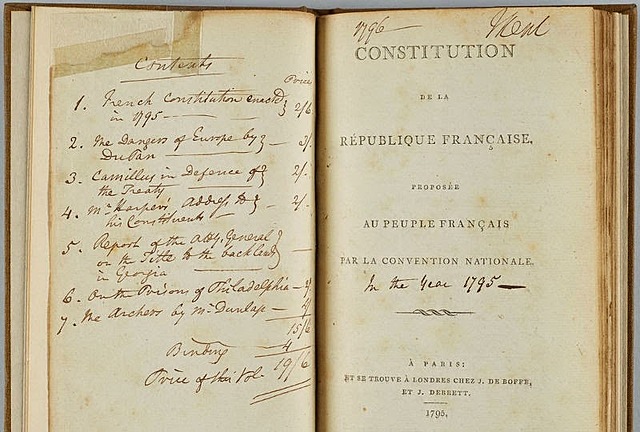 Contents
Price
1. French Constitution enacted
in 1795 2/6
2. The Dangers of Europe by
DuPan 3/.
3. Camillus in Defence of
the Treaty 2/.
4. Mr Harper's Address to
his Constituents 2/.
5. Report of the Atty. General
on the Title to the back lands
in Georgia
6. On the Prisons of Philadelphia
7. The Archers by Mr Dunlap
15/6
Binding 4
Price of this Vol. 19/6
1796
CONSTITUTION
DE LA
RÉPUBLIQUE FRANÇAISE,
PROPOSÉE
AU PEUPLE FRANÇAIS
PAR LA CONVENTION NATIONALE.
In the Year 1795
À PARIS:
ET SE TROUVE À LONDRES CHEZ J. DE BOFFE,
ET J. DEBRETT.
1795.